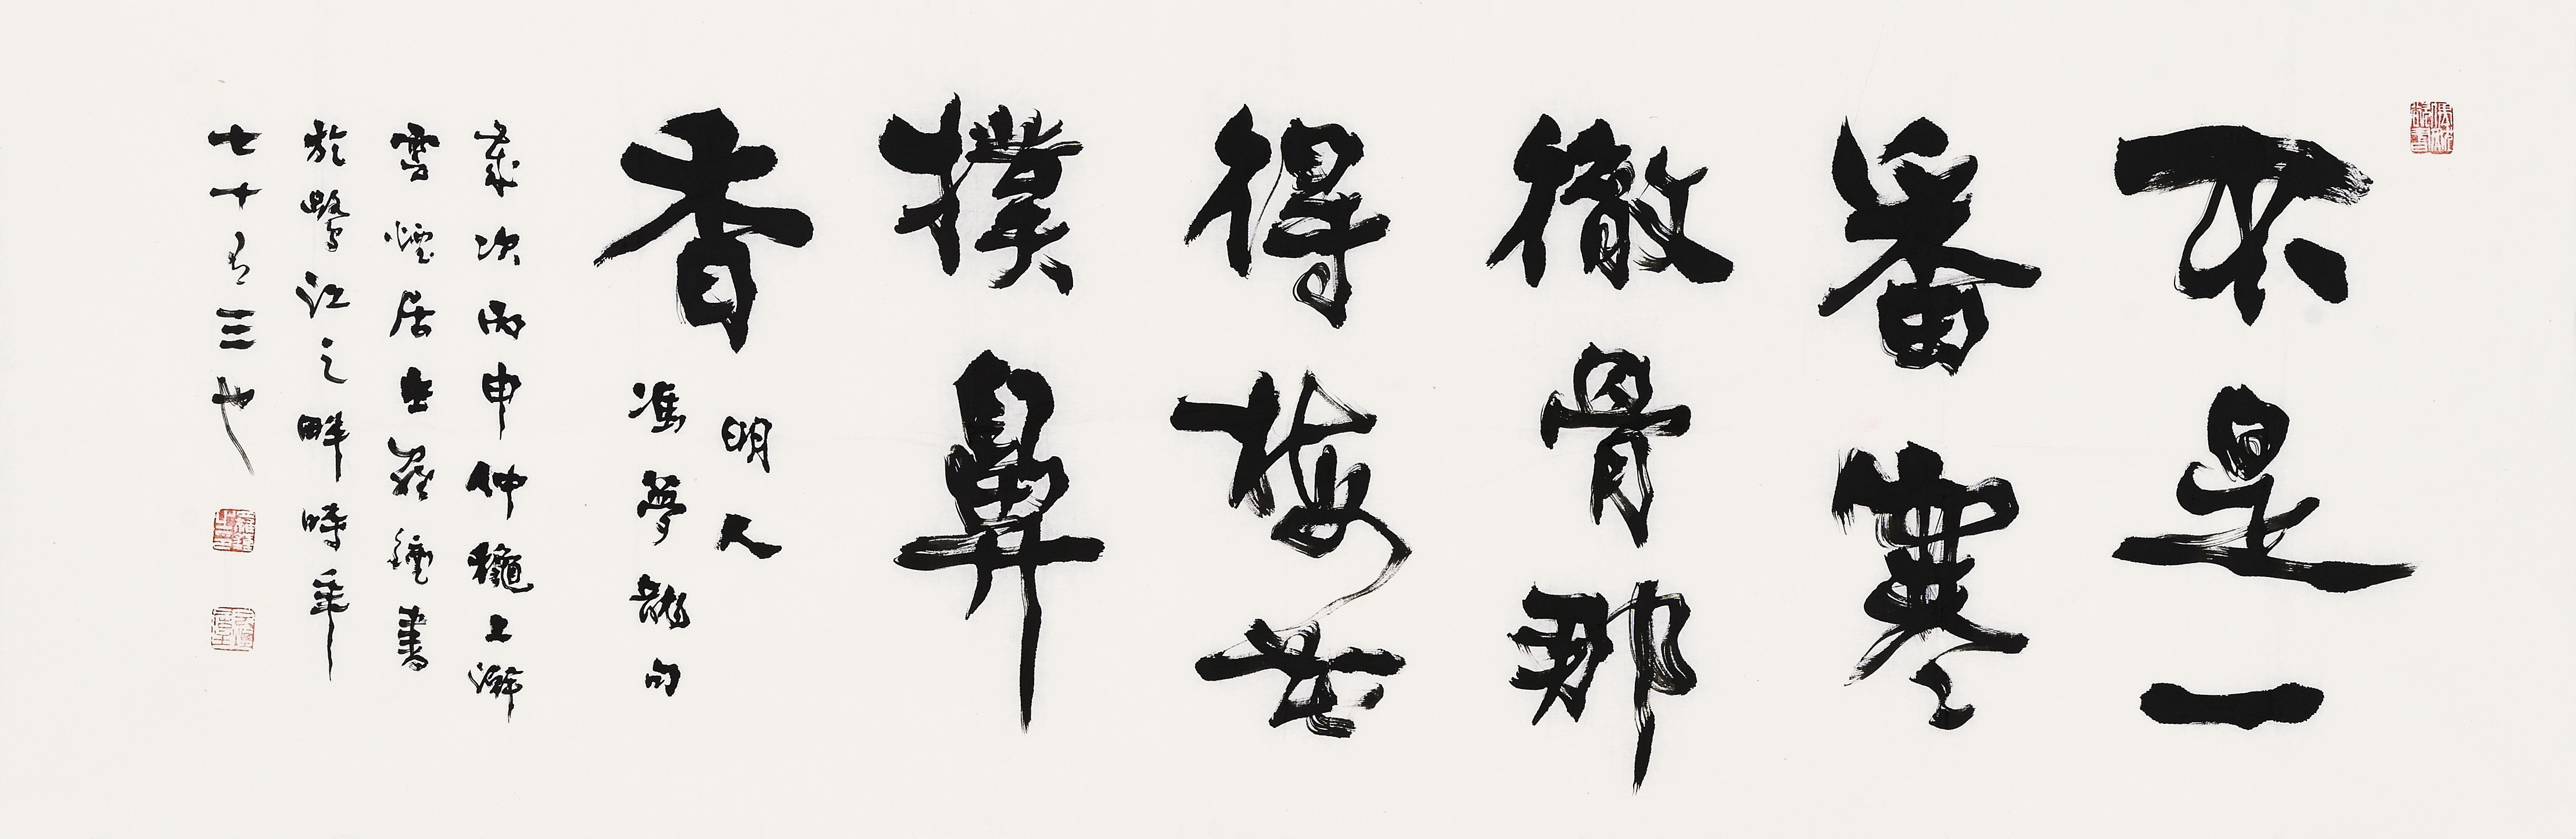 不是一
番寒
徹骨那
得梅花
撲鼻
香
明人
馮夢龍句
歲次丙申仲龝上澣
雪煙居士羅鐘書
於鷺江之畔時年
七十有三也